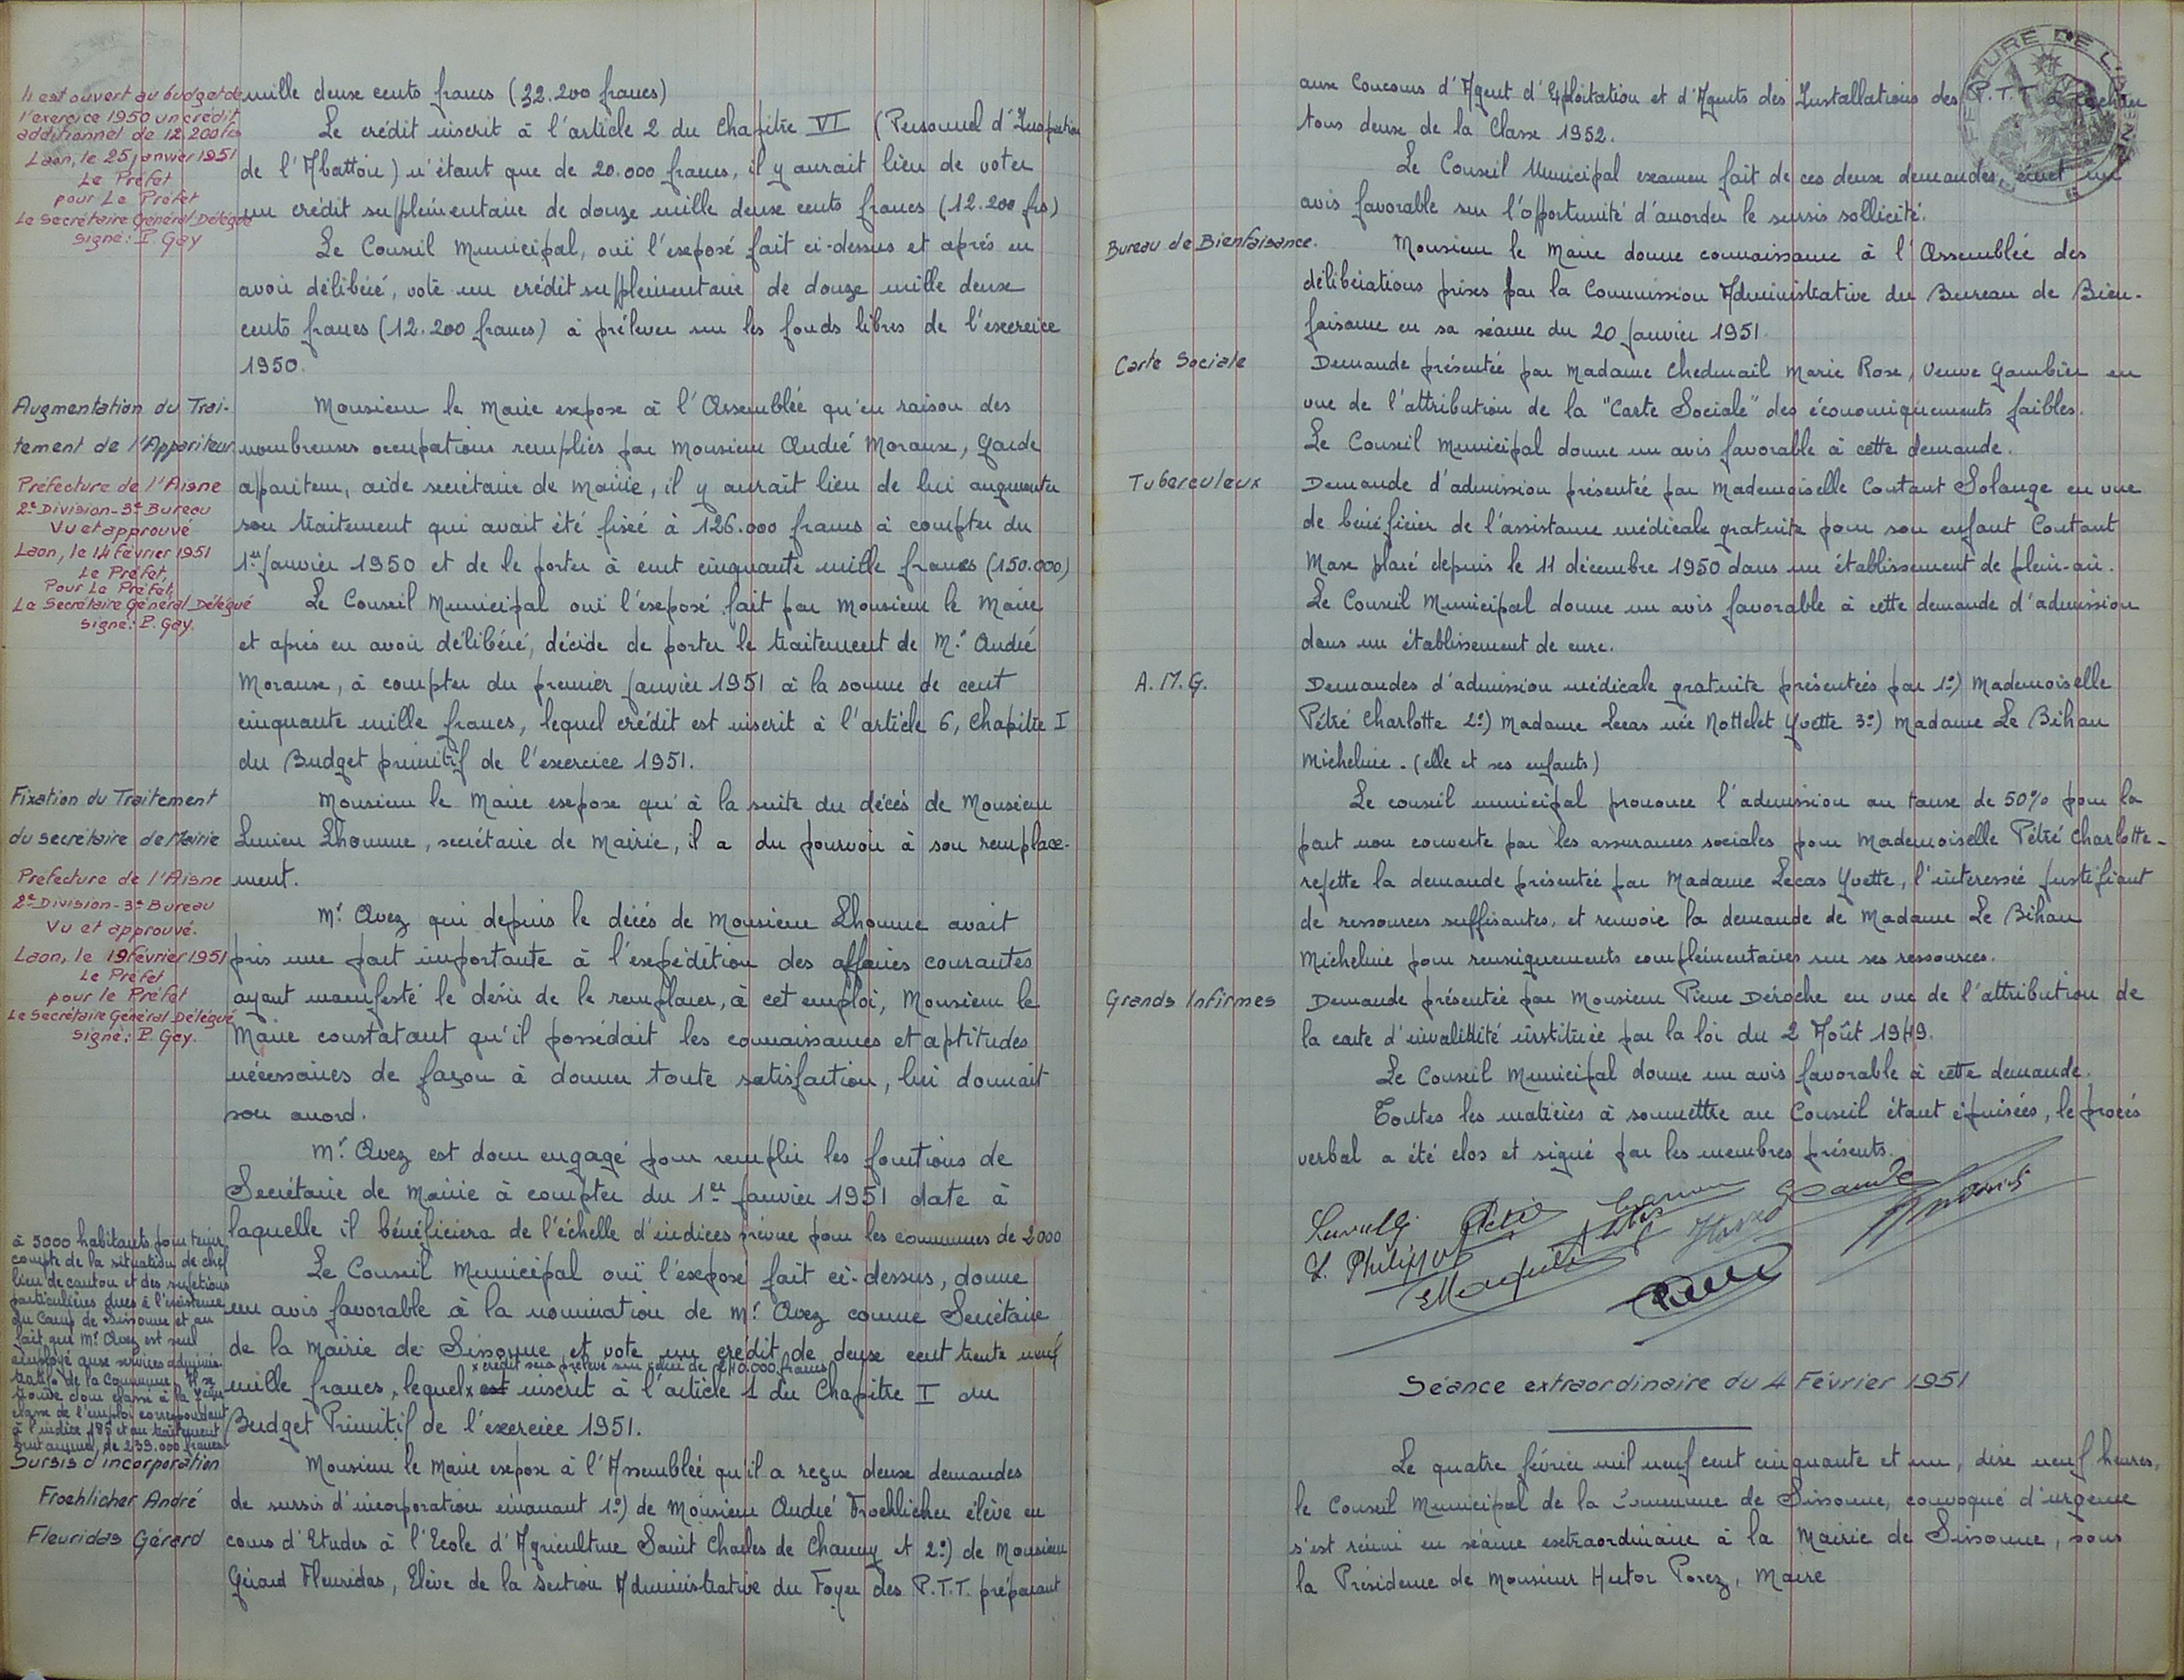 Il est ouvert au budget de
l'exercice 1950 un crédit
additionnel de 12.200 frs
Laon, le 25 janvier 1951
Le Préfet
pour Le Préfet
Le Secrétaire Général Délégué
Signé: P. Gay
mille deux cents francs (32.200 francs)
Le crédit inscrit à l'article 2 du Chapitre VI (Personnel d'Inspection
de l'Abattoir) n'étant que de 20.000 francs, il y aurait lieu de voter
un crédit supplémentaire de douze mille deux cents francs (12.200 frs)
Le Conseil Municipal, ouï l'exposé fait ci-dessus et après en
avoir délibéré, vote un crédit supplémentaire de douze mille deux
cents francs (12.200 francs) à prélever sur les fonds libres de l'exercice
1950.
Augmentation du Trai-
tement de l'Appariteur
Préfecture de l'Aisne
2e Division - 3e Bureau
Vu et approuvé
Laon, le 14 février 1951
Le Préfet,
Pour Le Préfet,
Le Secrétaire Général Délégué
signé: P. Gay.
Monsieur le Maire expose à l'Assemblée qu'en raison des
nombreuses occupations remplies par Monsieur André Moraux, Garde
appariteur, aide secrétaire de Mairie, il y aurait lieu de lui augmenter
son traitement qui avait été fixé à 126.000 francs à compter du
1er Janvier 1950 et de le porter à cent cinquante mille francs (150.000)
Le Conseil Municipal ouï l'exposé fait par Monsieur le Maire
et après en avoir délibéré, décide de porter le traitement de Mr André
Moraux, à compter du premier Janvier 1951 à la somme de cent
cinquante mille francs, lequel crédit est inscrit à l'article 6, Chapitre I
du Budget primitif de l'exercice 1951.
Fixation du Traitement
du secrétaire de Mairie
Préfecture de l'Aisne
2e Division - 3e Bureau
Vu et approuvé.
Laon, le 19 février 1951
Le Préfet
pour le Préfet
Le Secrétaire Général Délégué
signé: P. Gay.
Monsieur le Maire expose qu'à la suite du décès de Monsieur
Lucien Lhomme, secrétaire de Mairie, il a du pourvoir à son remplace-
ment.
Mr Avez qui depuis le décès de Monsieur Lhomme avait
pris une part importante à l'expédition des affaires courantes
ayant manifesté le désir de le remplacer, à cet emploi, Monsieur le
Maire constatant qu'il possédait les connaissances et aptitudes
nécessaires de façon à donner toute satisfaction, lui donnait
son accord.
Mr Avez est donc engagé pour remplir les fonctions de
Secrétaire de Mairie à compter du 1er Janvier 1951 date à
laquelle il bénéficiera de l'échelle d'indices prévue pour les communes de 2000
à 5000 habitants pour tenir
compte de la situation de chef
lieu de canton et des sujetions
particulières dues à l'existence
du Camp de Sissonne et au
fait que Mr Avez est seul
employé aux services adminis-
tratifs de la Commune. Il se
trouve donc classé à la
classe de l'emploi correspondant
à l'indice 185 et au traitement
brut annuel de 239.000 francs.
Le Conseil Municipal ouï l'exposé fait ci-dessus, donne
un avis favorable à la nomination de Mr Avez comme Secrétaire
de la Mairie de Sissonne et vote un crédit de deux cent trente neuf
x crédit sera prélevé sur celui de 240.000 francs
mille francs, lequel x est inscrit à l'article 1 du Chapitre I du
Budget Primitif de l'exercice 1951.
Sursis d'incorporation
Froehlicher André
Fleuridas Gérard
Monsieur le Maire expose à l'Assemblée qu'il a reçu deux demandes
de sursis d'incorporation émanant 1°) de Monsieur André Froehlicher élève en
cours d'Etudes à l'Ecole d'Agriculture Saint Charles de Chauny et 2°) de Monsieur
Gérard Fleuridas, Elève de la section Administrative du Foyer des P.T.T. préparant
aux Concours d'Agent d'Exploitation et d'Agents des Installations des P.T.T. à Cachan
tous deux de la Classe 1952.
Le Conseil Municipal examen fait de ces deux demandes, émet un
avis favorable sur l'opportunité d'accorder le sursis sollicité.
Bureau de Bienfaisance.
Monsieur le Maire donne connaissance à l'Assemblée des
délibérations prises par la Commission Administrative du Bureau de Bien-
faisance en sa séance du 20 Janvier 1951.
Carte Sociale
Demande présentée par Madame Chedmail Marie Rose, Veuve Gambier en
vue de l'attribution de la "Carte Sociale" des économiquements faibles.
Le Conseil Municipal donne un avis favorable à cette demande.
Tuberculeux
Demande d'admission présentée par Mademoiselle Coutant Solange en vue
de bénéficier de l'assistance médicale gratuite pour son enfant Coutant
Max placé depuis le 11 décembre 1950 dans un établissement de plein-air.
Le Conseil Municipal donne un avis favorable à cette demande d'admission
dans un établissement de cure.
A.M.G.
Demandes d'admission médicale gratuite présentées par 1°) Mademoiselle
Pétré Charlotte 2°) Madame Lecas née Nottelet Yvette 3°) Madame Le Bihan
Micheline. (elle et ses enfants)
Le conseil municipal prononce l'admission au taux de 50% pour la
part non couverte par les assurances sociales pour Mademoiselle Pétré Charlotte -
rejette la demande présentée par Madame Lecas Yvette, l'intéressée justifiant
de ressources suffisantes, et renvoie la demande de Madame Le Bihan
Micheline pour renseignements complémentaires sur ses ressources.
Grands Infirmes
Demande présentée par Monsieur Pierre Déroche en vue de l'attribution de
la carte d'invalidité instituée par la loi du 2 Août 1949.
Le Conseil Municipal donne un avis favorable à cette demande.
Toutes les matières à soumettre au Conseil étant épuisées, le procès
verbal a été clos et signé par les membres présents.
L. Philippot
Séance extraordinaire du 4 Février 1951
Le quatre février mil neuf cent cinquante et un, dix neuf heures,
le Conseil Municipal de la Commune de Sissonne, convoqué d'urgence
s'est réuni en séance extraordinaire à la Mairie de Sissonne, sous
la Présidence de Monsieur Hector Porez, Maire